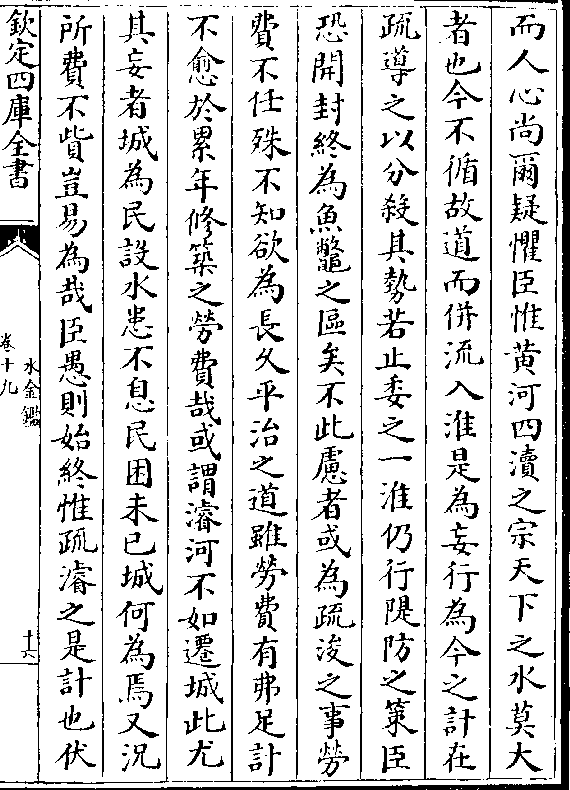 而人心尚爾疑懼臣惟黄河四瀆之宗天下之水莫大
者也今不循故道而併流入淮是為妄行為今之計在
疏導之以分殺其勢若止委之一淮仍行隄防之策臣
恐開封終為魚鼈之區矣不此慮者或為疏浚之事勞
費不任殊不知欲為長久平治之道雖勞費有弗足計
不愈於累年修築之勞費哉或謂濬河不如遷城此尤
其妄者城為民設水患不息民困未已城何為焉又況
所費不貲豈易為哉臣愚則始終惟疏濬之是計也伏
欽定四庫全書
水金鑑
卷十九
十六